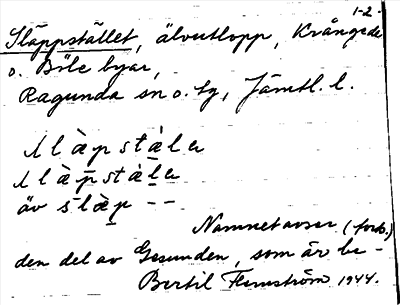 1-2.
Släppstället, älvutlopp, Krångede
o. Böle byar,
Ragunda sn o. tg, Jämtl. l.
slæ̀pstạ̀la
slæ̀pstàḷa
äv slæ̀p --
Namnet avser (forts.)
den del av Gesunden, som är be-
Bertil Flemström 1944.